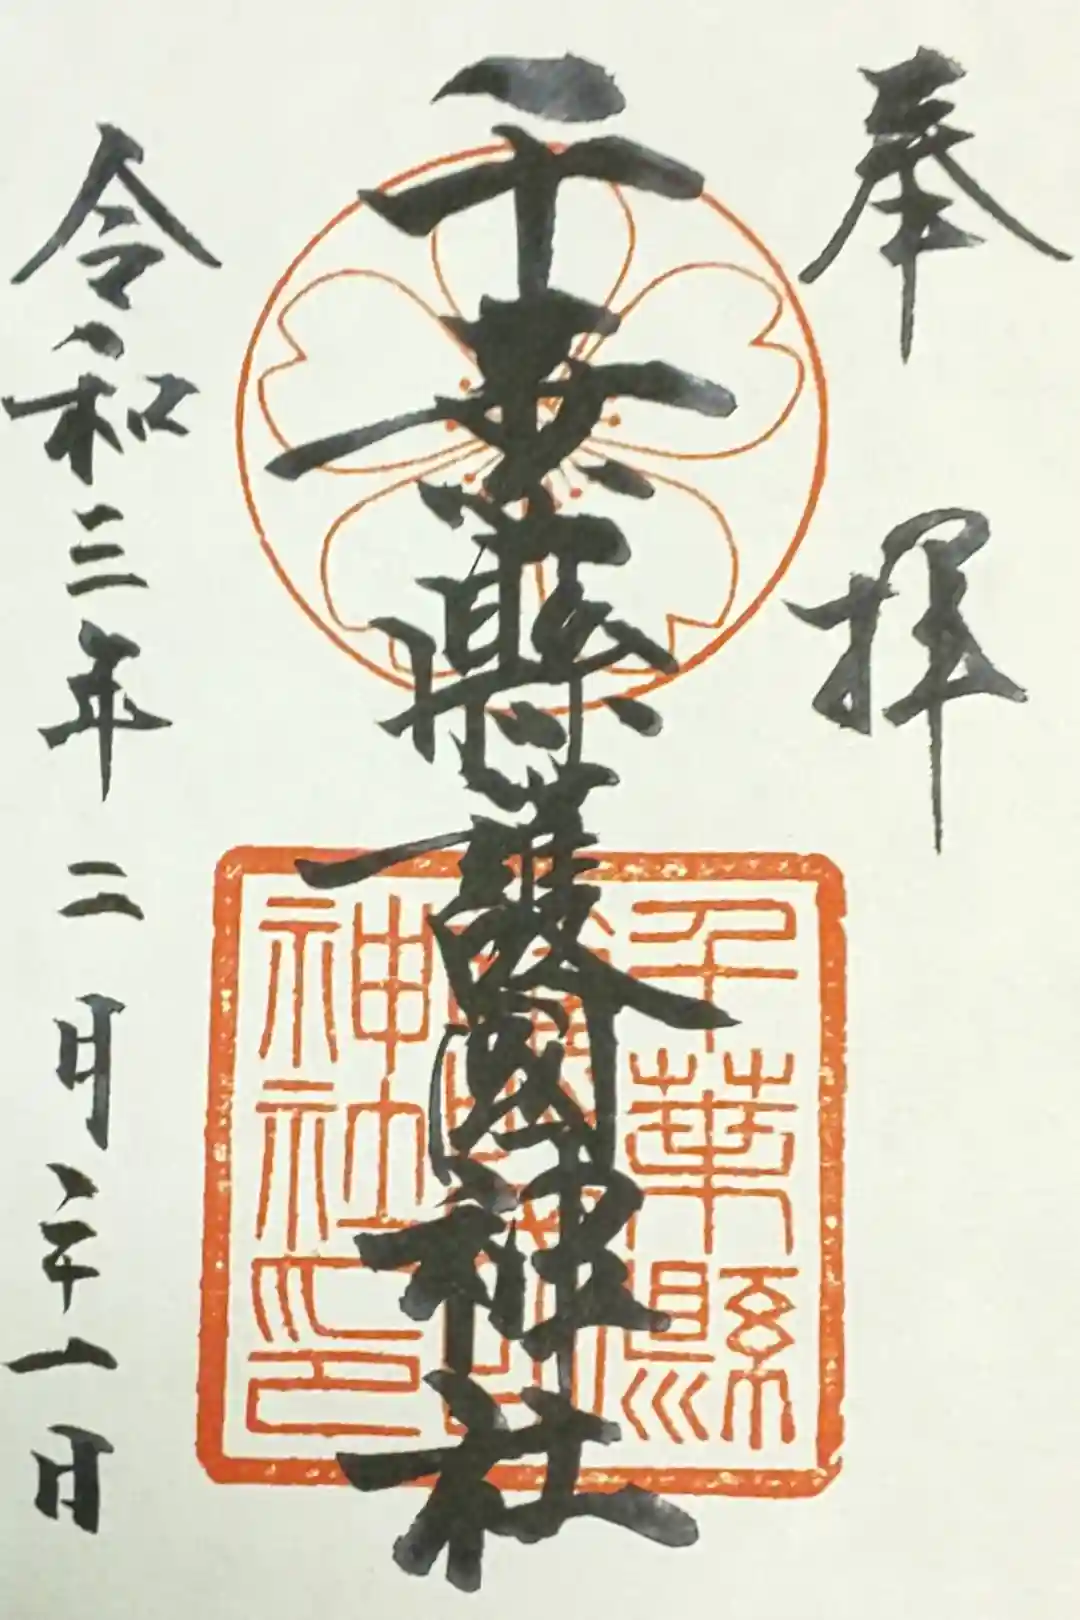 奉拝
千葉縣護國神社
千葉縣
護國
神社印
令和三年二月二十一日